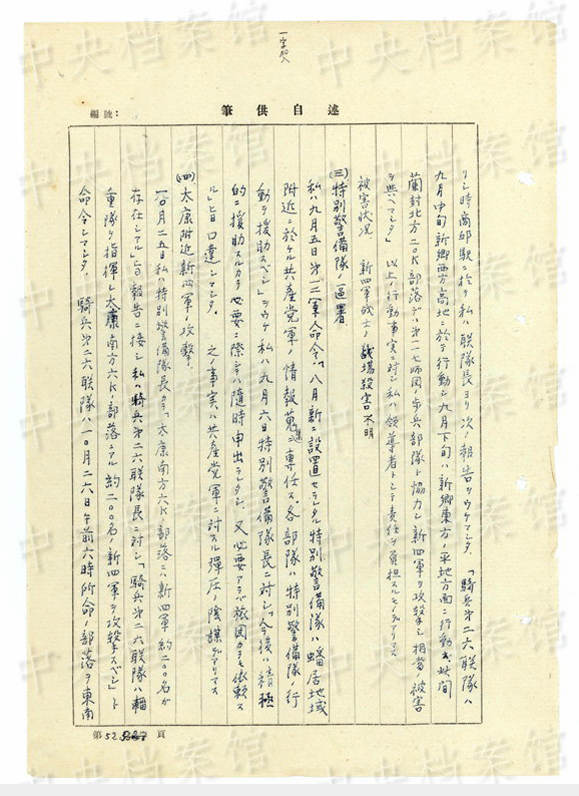 一字加入
編號：
述自供筆
リシ時商邱駅ニ於テ私ハ聯隊長ヨリ次ノ報告ヲウケマシタ。「騎兵第二六聯隊ハ
九月中旬新郷西方高地ニ於テ行動シ九月下旬ハ新郷東方ノ平地方面ニ行動 其間
蘭封北方二〇K部落デハ第一一七師団ノ歩兵部隊ト協力シ新四軍ヲ攻撃シ相当ノ被害
ヲ與ヘマシタ」 以上ノ行動事実ニ対シ私ハ領導者トシテ責任ヲ負担スルモノデアリマス
被害状況 新四軍战士ノ战場殺害不明
(三)特別警備隊ノ運署
私ハ九月五日第一二軍命令、「八月新ニ設置セラレタル特別警備隊ハ蟠居地域
附近ニ於ケル共産党軍ノ情報蒐集ニ専任ス、各部隊ハ特別警備隊ノ行
動ヲ援助スベシ」ヲウケ私ハ九月六日特別警備隊長ニ対シ「今後ハ積極
的ニ援助スルカラ必要ノ際ニハ随時申出ラレタシ、又必要アラバ旅団カラモ依頼ス
ル」旨口達シマシタ。 之ノ事実ハ共産党軍ニ対スル弾圧ノ陰謀デアリマス
(四)太康附近新四軍ノ攻撃、
一〇月二五日私ハ特別警備隊長カラ「太康南方六K部落ニハ新四軍約二〇〇名ガ
存在シアル」旨報告ニ接シ私ハ騎兵第二六聯隊長ニ対シ「騎兵第二六聯隊ハ輜
重隊ヲ指揮シ太康南方六Kノ部落ニアル約二〇〇名ノ新四軍ヲ攻撃スベシ」ト
命令シマシタ。 騎兵第二六聯隊ハ一〇月二六日午前六時所命ノ部落ヲ東南
第52頁
中央档案馆